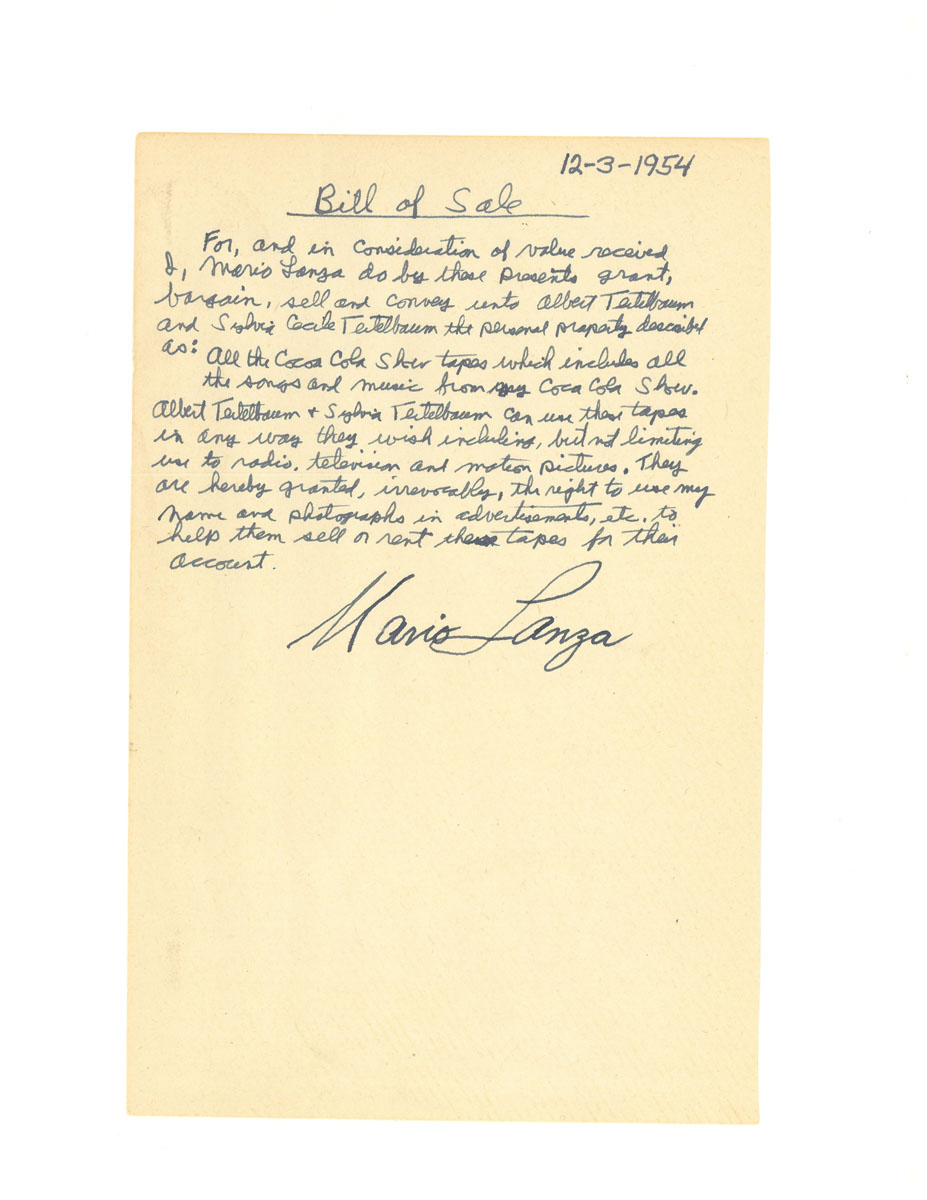 12-3-1954
Bill of Sale
For, and in consideration of value received
I, Mario Lanza do by these presents grant,
bargain, sell and convey unto Albert Teitelbaum
and Sylvia Cecile Teitelbaum the personal property described
as:
All the Cocoa Cola Show tapes which includes all
the songs and music from my Coca Cola Show.
Albert Teitelbaum + Sylvia Teitelbaum can use these tapes
in any way they wish including, but not limiting
use to radio, television and motion pictures. They
are hereby granted, irrevocably, the right to use my
name and photographs in advertisements, etc. to
help them sell or rent these tapes for their
account.
Mario Lanza